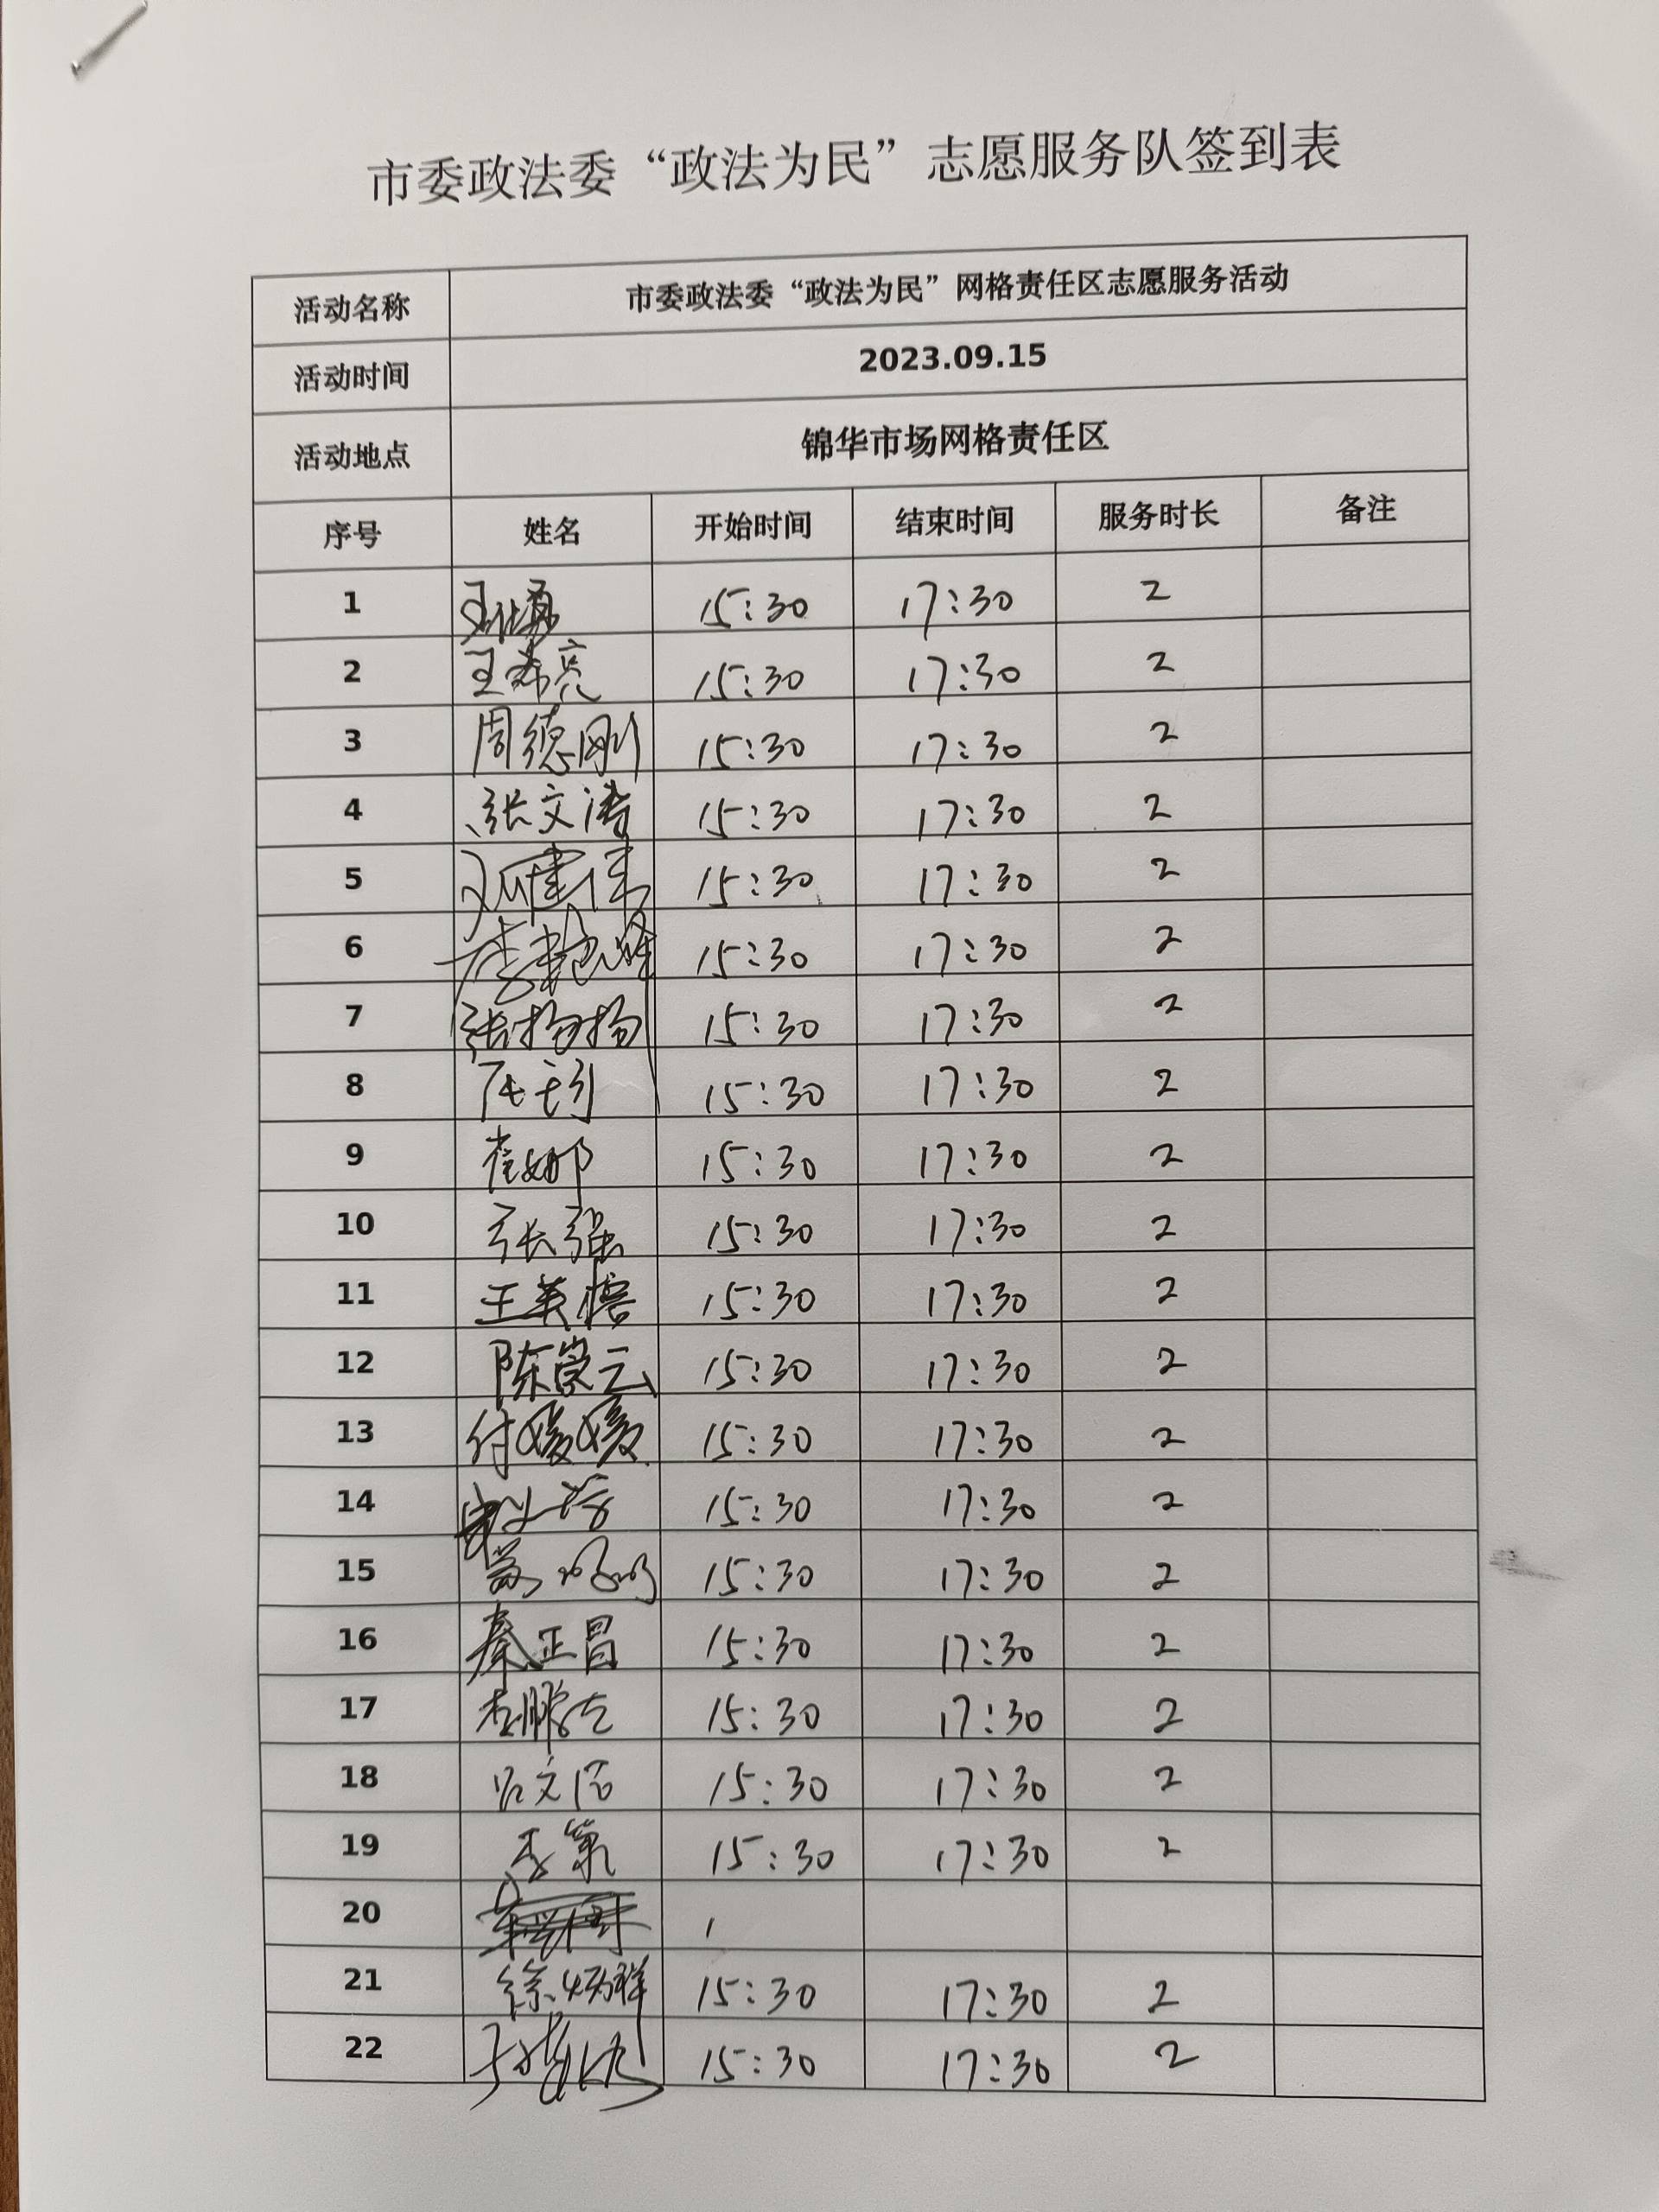 市委政法委“政法为民”志愿服务队签到表
活动名称 市委政法委“政法为民”网格责任区志愿服务活动
活动时间 2023.09.15
活动地点 锦华市场网格责任区
序号 姓名 开始时间 结束时间 服务时长 备注
1 15:30 17:30 2
2 王希亮 15:30 17:30 2
3 周德刚 15:30 17:30 2
4 张文涛 15:30 17:30 2
5 15:30 17:30 2
6 李艳峰 15:30 17:30 2
7 张扬扬 15:30 17:30 2
8 15:30 17:30 2
9 崔娜 15:30 17:30 2
10 张强 15:30 17:30 2
11 王英榕 15:30 17:30 2
12 陈崇云 15:30 17:30 2
13 付媛媛 15:30 17:30 2
14 15:30 17:30 2
15 15:30 17:30 2
16 秦正昌 15:30 17:30 2
17 15:30 17:30 2
18 15:30 17:30 2
19 15:30 17:30 2
20
21 徐炳祥 15:30 17:30 2
22 15:30 17:30 2